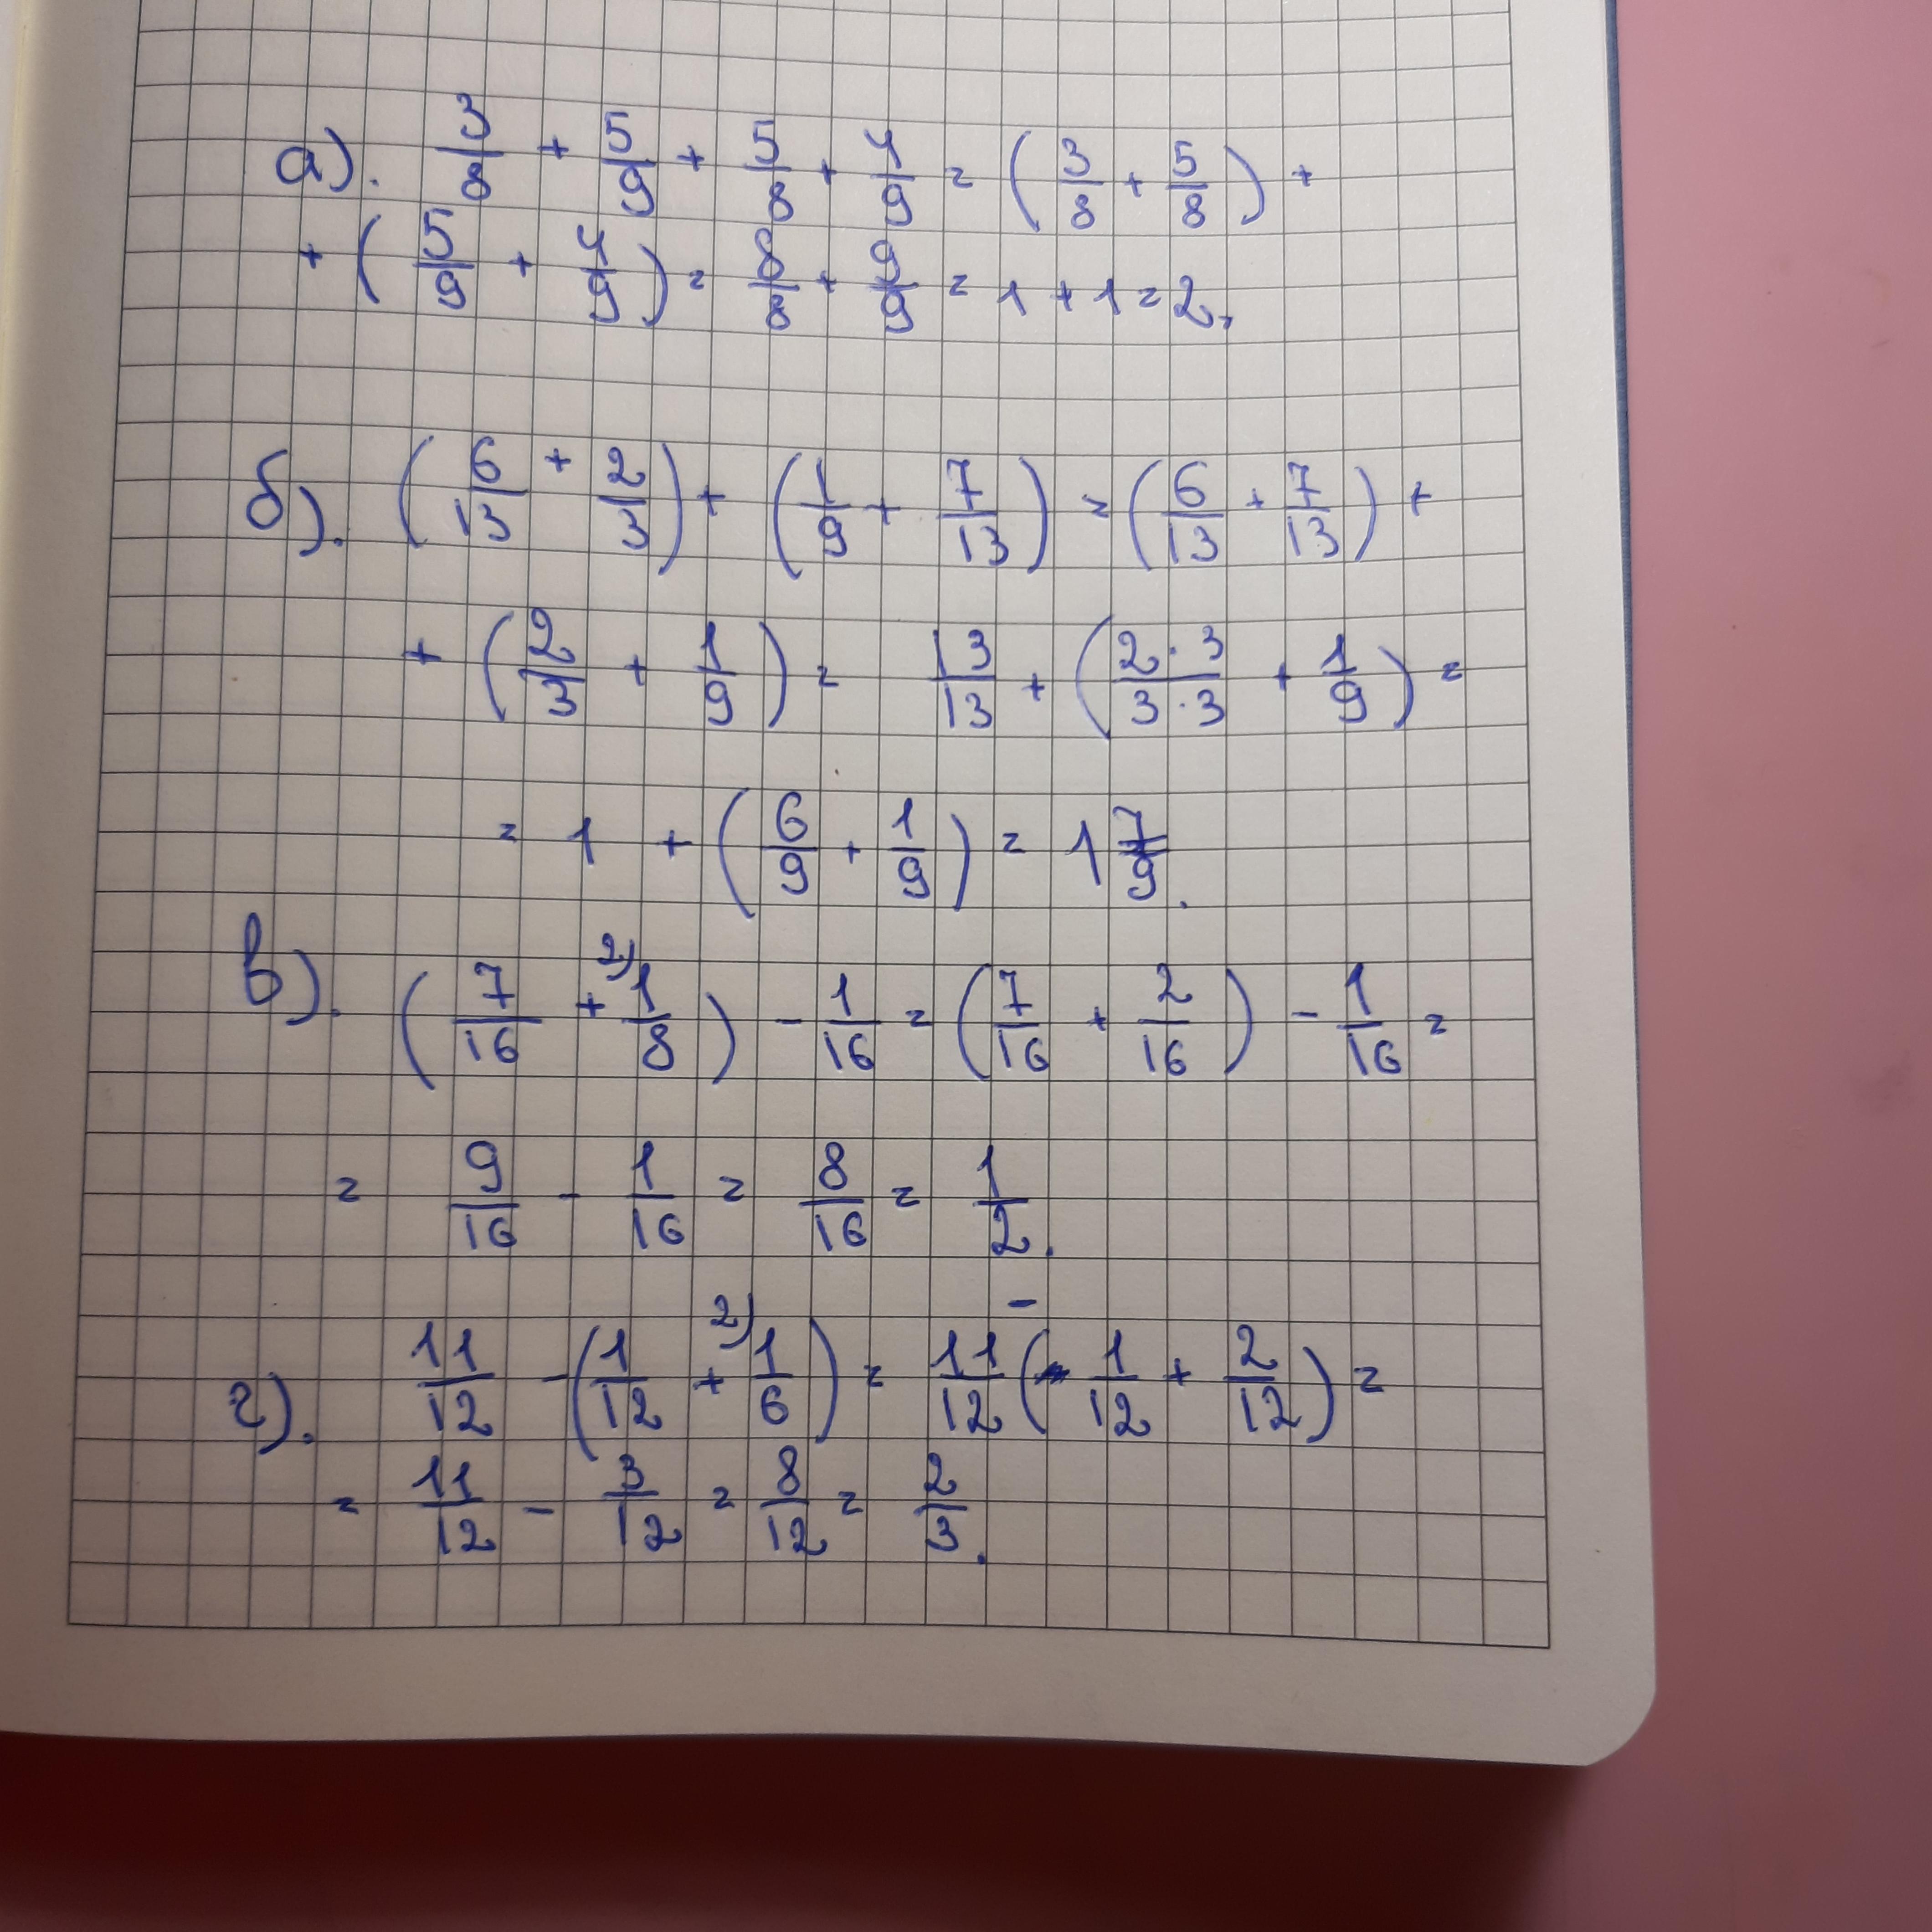 а). 3/8 + 5/9 + 5/8 + 4/9 = (3/8 + 5/8) +
+ (5/9 + 4/9) = 8/8 + 9/9 = 1 + 1 = 2.
б). (6/13 + 2/3) + (1/9 + 7/13) = (6/13 + 7/13) +
+ (2/3 + 1/9) = 13/13 + (2·3/3·3 + 1/9) =
= 1 + (6/9 + 1/9) = 1 7/9.
в). (7/16 + 2) 1/8) - 1/16 = (7/16 + 2/16) - 1/16 =
= 9/16 - 1/16 = 8/16 = 1/2.
г). 11/12 - (1/12 + 2) 1/6) = 11/12 - (1/12 + 2/12) =
= 11/12 - 3/12 = 8/12 = 2/3.